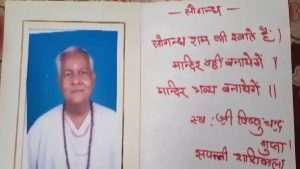 — सौगन्ध —
सौगन्ध राम की खाते हैं।
मन्दिर वहीं बनायेगें॥
मान्दिर भव्य बनायेगें॥
स्व: श्री विष्णु चन्द्र
गुप्ता
सपत्नी शशिकला